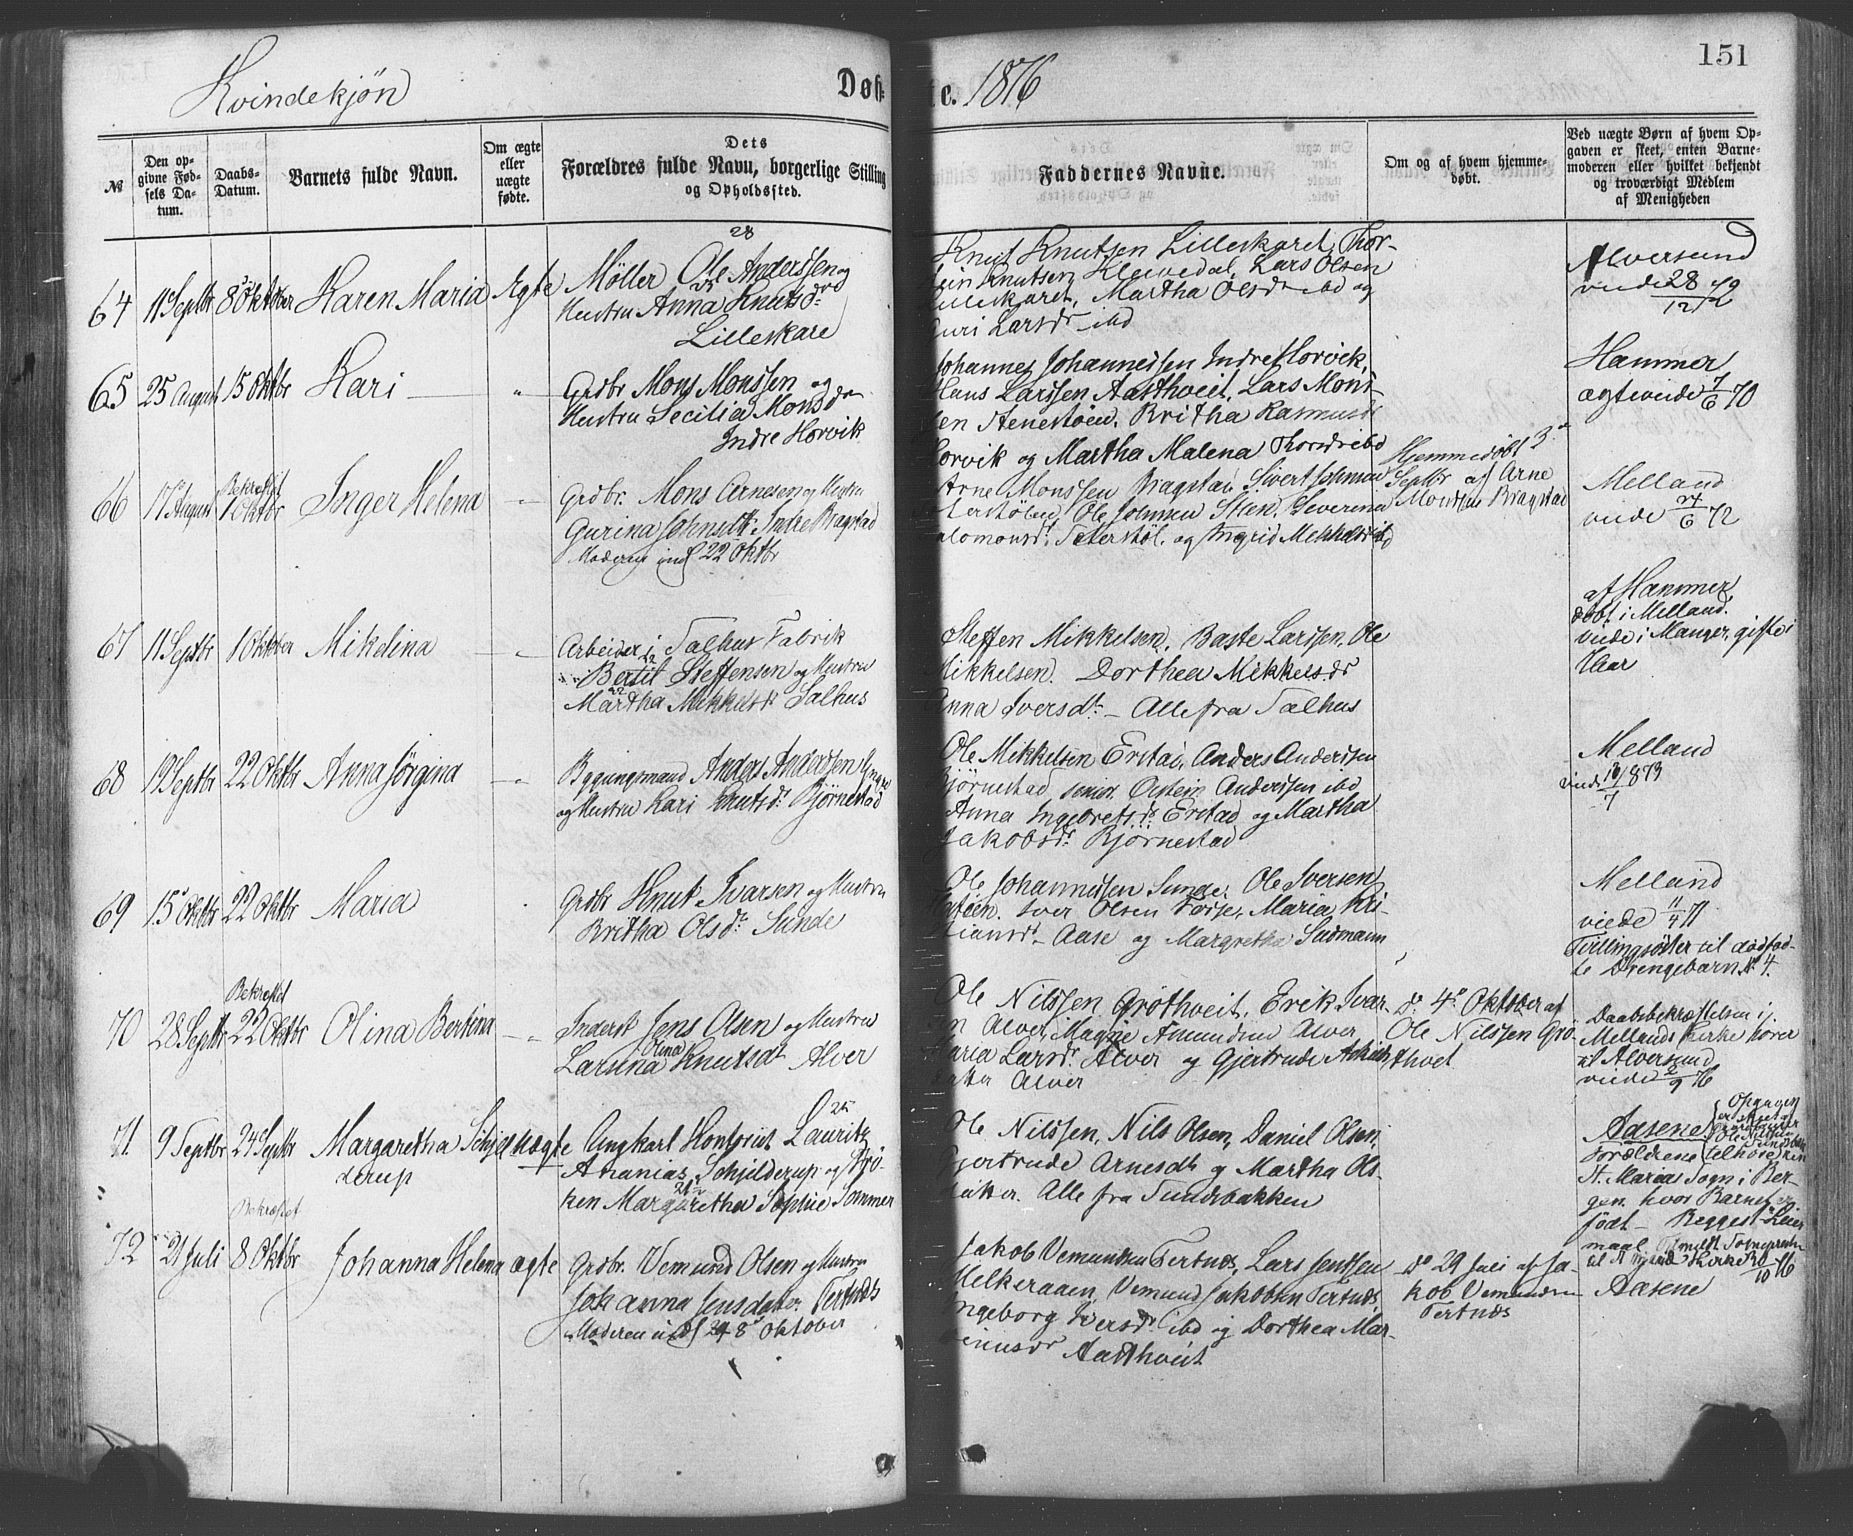 151
Kvindekjön
Døb-
te. 1876
№
Den opgivne Fødsels Datum.
Daabs-Datum.
Barnets fulde Navn.
Om ægte eller uægte fødte.
Dets
Forældres fulde Navn, borgerlige Stilling
og Opholdssted.
Faddernes Navne.
Om og af hvem hjemmedøbt.
Ved uægte Børn af hvem Opgaven er skeet, enten Barnemoderen eller hvilket bekjendt og troværdigt Medlem af Menigheden
64 11 Septbr 8 Oktober Karen Maria Ægte
28
Møller Ole Anderssen og
Hustru Anna Knutsdr
Lilleskare
Knut Knutsen Lilleskaret, Thor-
Knutsen Kleivedal, Lars Olsen
Lilleskaret, Martha Olsdr ibd og
Larsdr ibd
Alversund
viede 28/12 72
65 25 August 15 Oktbr Kari "
Grdbr Mons Monssen og
Hustru Cecilia Monsdr
Indre Horvik
Johannes Johannessen Indre Horvik,
Hans Larssen Aasthveit, Lars Mons-
sen Stenestøen, Britha Rasmusdr
Horvik og Martha Malena Thorsdr ibd
Hammer
ægteviede 7/6 70
66 17 August Bekræftet
1 Oktbr Inger Helena "
Grdbr. Mons Arnesen og Hustru
Gurina Johnsdtr Indre Bragstad
Moderen indl 22 Oktbr
Arne Monssen Bragstad, Sivert Johnsen
Ole Johnsen Steen, Severina
Salomonsdr. og Ingrid Mekkelsdr ibd
Hjemmedøbt 3
Septbr af Arne
Monssen Bragstad
Melland
viede 24/6 72
67 11 Septbr 1 Oktober Mikelina
Arbeider i Salhus Fabrik
Bertil Steffensen og Hustru
Martha Mikkelsdr Salhus
Steffen Mikkelsen, Baste Larssen, Ole
Mikkelsen. Dorthea Mikkelsdr
Anna Iversdr. – Alle fra Salhus
af Hammer
døbt i Melland.
viede i Manger, gifte i
1 Aar
68 19 Septbr 22 Oktbr Anna Jørgina
Bygningsmand Anders Anderssen Yngre
og Hustru Kari Knutsdr Bjørnestad
Ole Mikkelsen Erstad, Anders Anderssen
Bjørnestad senior, Anderssen ibd
Anna Ingebretsdr Erstad og Martha
Jakobsdr Bjørnestad
Melland
viede 13/7 1873
69 15 Oktbr 22 Oktbr Maria
Grdbr Knut Ivarsen og Hustru
Britha Olsdr Sunde
Ole Johannessen Sunde, Ole Iversen
Iver Olsen Maria Kri-
stiansdr Aase og Margretha Sudmann
Melland
viede 11/4 71
Tvillingsøster til dødfød-
te Drengebarn № 4.
70 28 Septbr Bekræftet
22 Oktbr Olina Bertina
Inderst Jens Olsen og Hustru
Olina
Larsina Knutsdr Alver
Ole Nilssen Grothveit, Erik Ivar-
sen Alver, Magne Amundsen Alver
Maria Larsdr Alver og Gjertrude
Alver
do 4 Oktober af
Ole Nilssen Gro-
thvet
Daabsbekræftelsen i
Mellands Kirke hører
til Alversund
viede 2/9 76
71 9 Septbr 24 Septbr Margaretha Schjel-
derup uægte
25
Ungkarl Lauritz
Ananias Schjelderup og Frø-
ken Margaretha Sophie Sommer
Ole Nilssen, Nils Olsen, Daniel Olsen,
Gjertrude Arnesdtr og Martha Ols-
datter. Alle fra Sundsbakken
Aasene
Opgaven
er skeet af
Ole Nilssen
Forældrene tilhøre
St. Marias Sogn i Ber-
gen hvor Barnet er
født – Begges 1 Leier-
maal.
72 21 Juli Bekræftet
8 Oktbr Johanna Helena ægte
Grdbr. Vemund Olsen og Hustru
Johanna Jensdatter Tertnæs
Moderen indl 8 Oktober
Jakob Vemundsen Tertnæs, Lars Jentsen
Melkeraaen, Vemund Jakobsen Tertnæs,
Ingeborg Iversdr ibd og Dorthea Mar-
Aasthveit
do 29 Juli af Ja-
kob Vemundsen
Tertnæs
Aasene